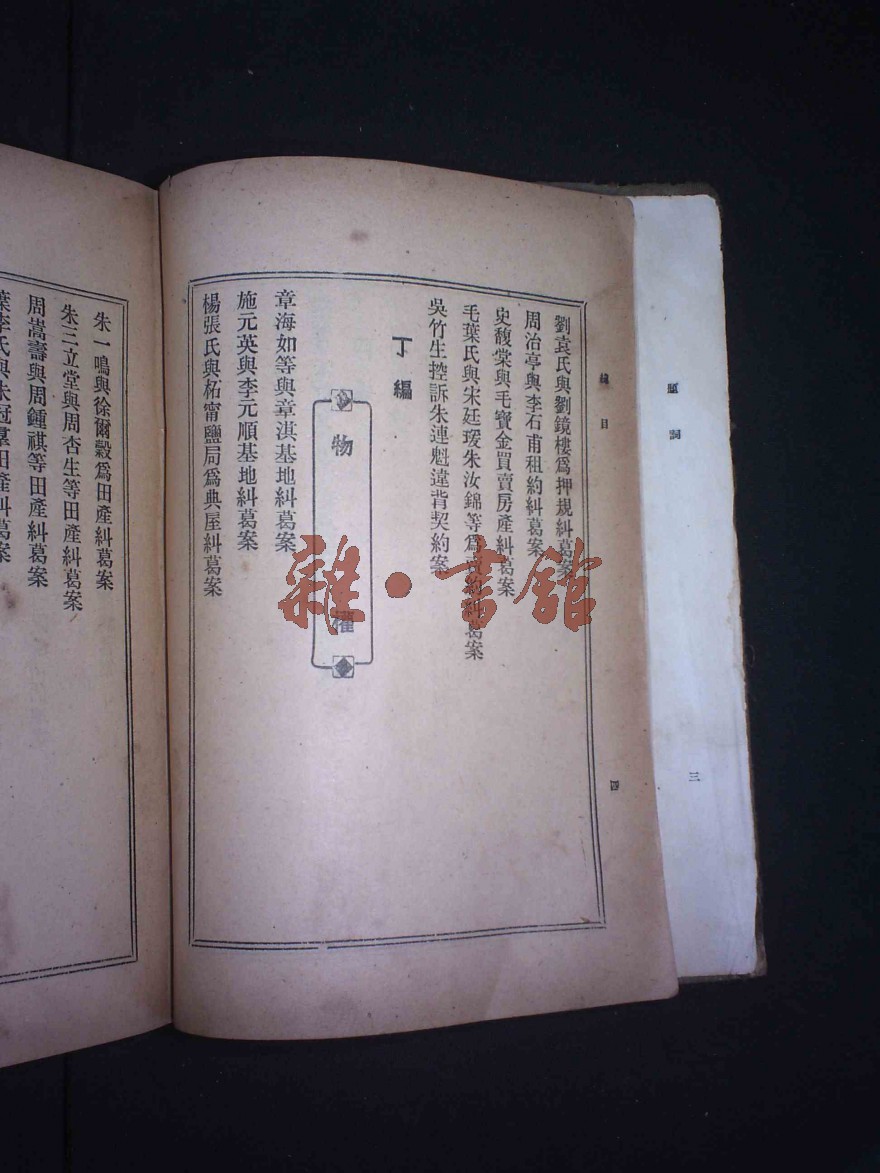 題詞
三
總目
四
劉袁氏與劉鏡樓爲押規糾葛案
周治亭與李石甫租約糾葛案
史馥棠與毛寶金買賣房產糾葛案
毛葉氏與宋廷瑗朱汝錦等爲 約糾葛案
吳竹生控訴朱連魁違背契約案
丁編
物權
章海如等與章淇基地糾葛案
施元英與李元順基地糾葛案
楊張氏與柘甯鹽局爲典屋糾葛案
朱一鳴與徐爾穀爲田產糾葛案
朱三立堂與周杏生等田產糾葛案
周嵩壽與周鍾祺等田產糾葛案
葉李氏與朱冠羣田產糾葛案
雜·書館